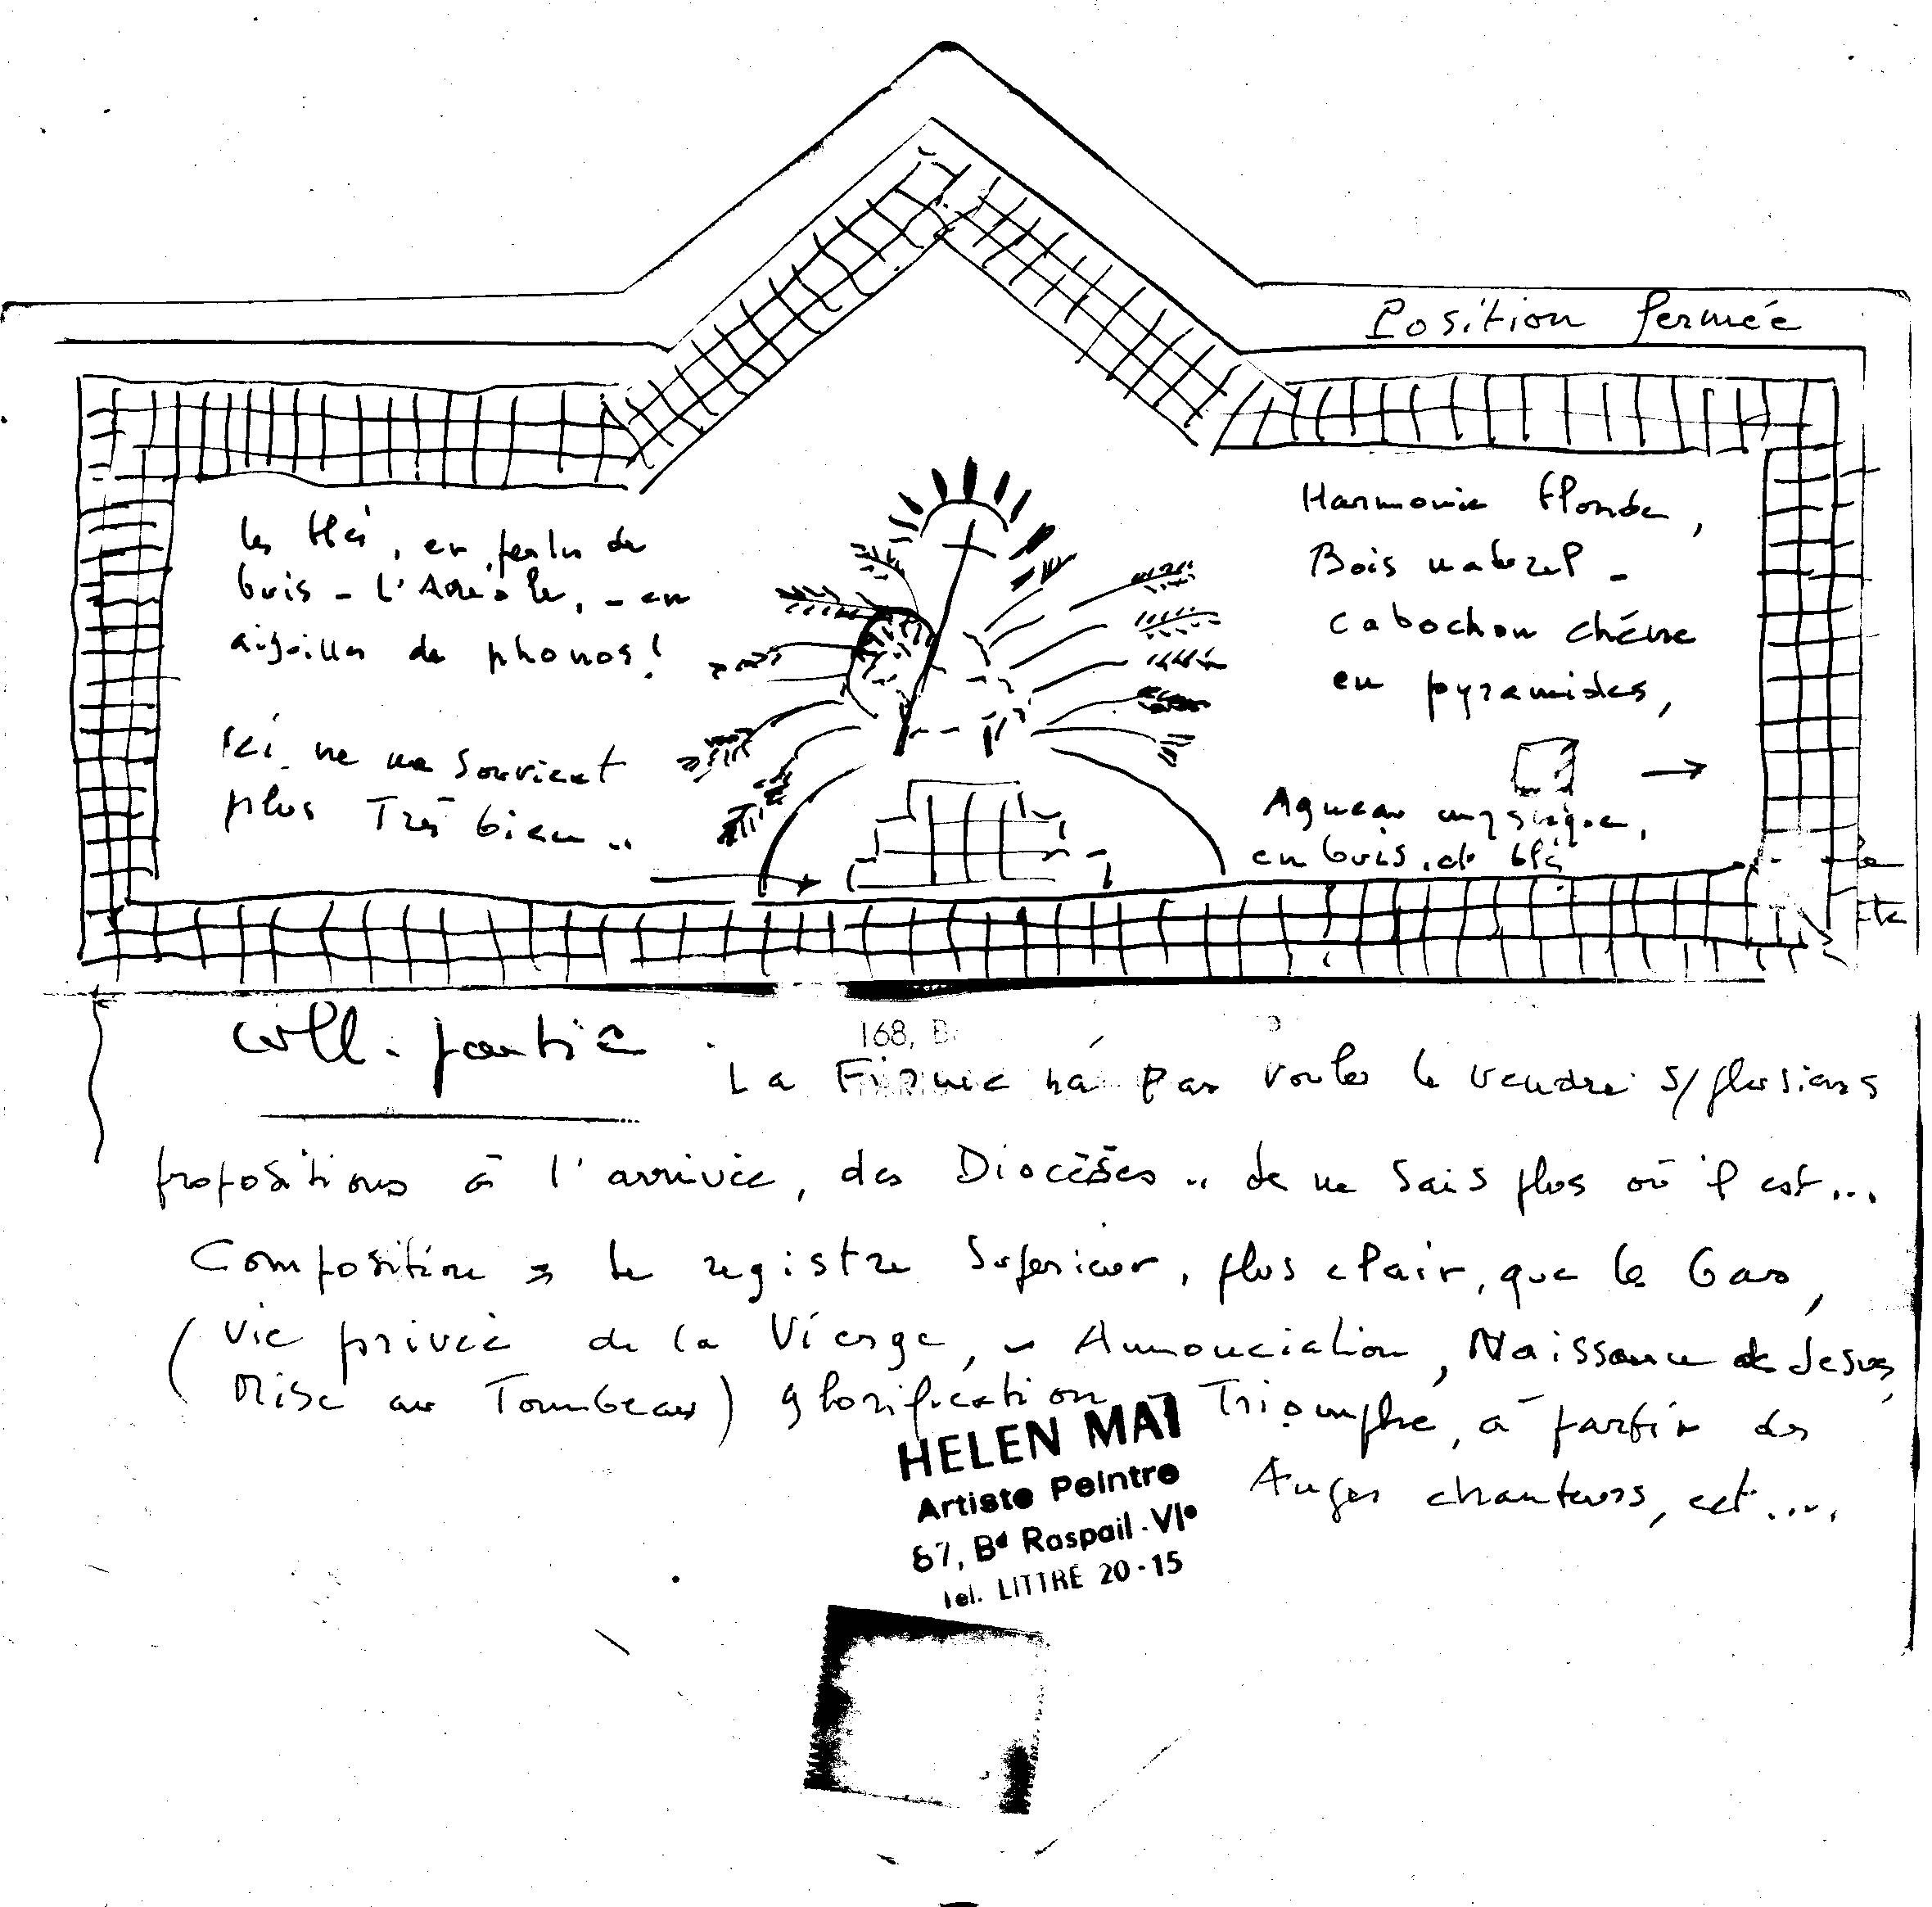 Position fermée
Les blés, en perles de
buis - l'Auréole, - en
aiguilles de phonos!
Ici ne me souvient
plus Très bien ..
Harmonie blonde,
Bois naturel -
cabochon chêne
en pyramides,
Agneau mystique,
en buis, et blé
Coll. partic
168, B
La Firme n'a pas voulu le vendre s/plusieurs
propositions à l'arrivée, des Diocèses .. Je ne sais plus où il est...
Composition le registre Supérieur, plus clair, que le bas,
(Vie privée de la Vierge, - Annonciation, Naissance de Jesus,
Mise au Tombeau) glorification, Triomphe, à partir des
Anges chanteurs, ect....
HELEN MAÏ
Artiste Peintre
67, Bd Raspail - VIe
Tel. LITTRÉ 20-15